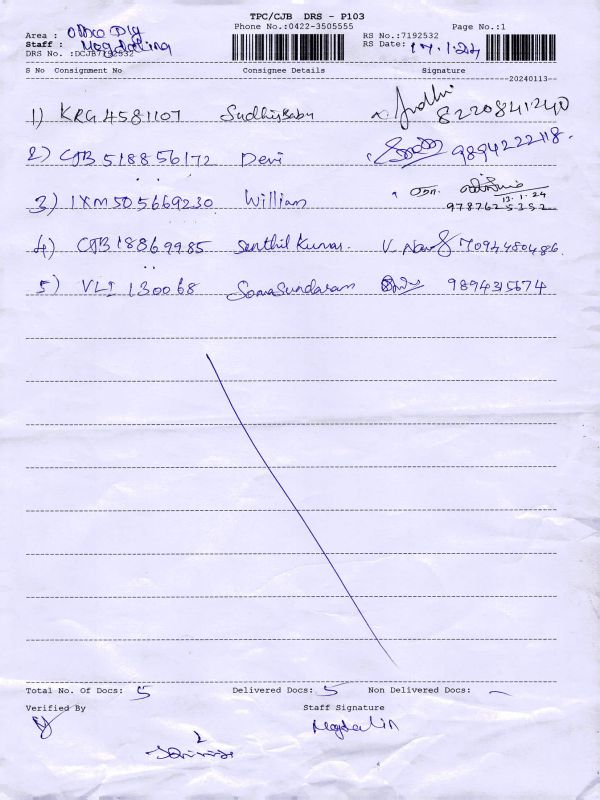 TPC/CJB DRS - P103
Phone No.:0422-3505555
Page No.:1
Area : office Dly
RS No.:7192532
Staff : Magdalina
RS Date: 17.1.24
DRS No. :DCJB7192532
S No Consignment No Consignee Details Signature
20240113
1) KRG4581107 Sudhijbabu Sudhi 8220841240
2) CJB 518856172 Devi 9894222118.
3) 1XM505669230 William
13.1.24
978762 5352
4) CJB18869985 Senthil Kumar. 7094480486.
5) VLI 130068 Somasundaram 9894315674
Total No. Of Docs: 5 Delivered Docs: 5 Non Delivered Docs: -
Verified By Staff Signature
Magdalin
2